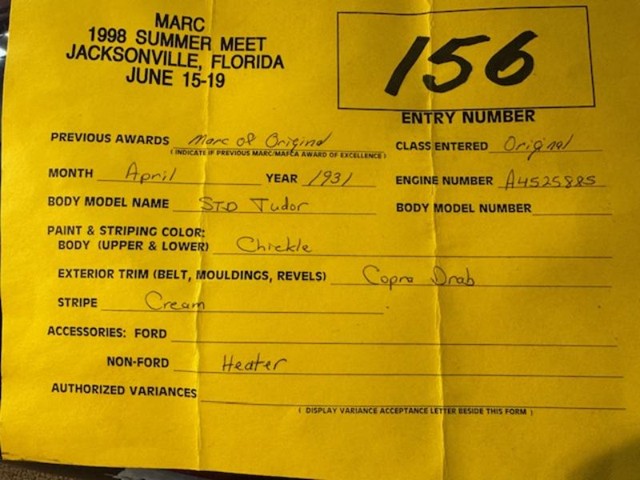 MARC
1998 SUMMER MEET
JACKSONVILLE, FLORIDA
JUNE 15-19
156
ENTRY NUMBER
PREVIOUS AWARDS Marc of Original
( INDICATE IF PREVIOUS MARC/MAFCA AWARD OF EXCELLENCE )
CLASS ENTERED Original
MONTH April YEAR 1931 ENGINE NUMBER A4525885
BODY MODEL NAME STD Tudor BODY MODEL NUMBER
PAINT & STRIPING COLOR:
BODY (UPPER & LOWER) Chickle
EXTERIOR TRIM (BELT, MOULDINGS, REVELS) Copra Drab
STRIPE Cream
ACCESSORIES: FORD
NON-FORD Heater
AUTHORIZED VARIANCES
( DISPLAY VARIANCE ACCEPTANCE LETTER BESIDE THIS FORM )